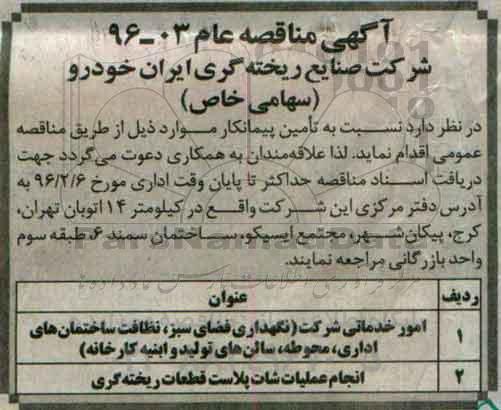 آگهی مناقصه عام ۰۳-۹۶
شرکت صنایع ریخته گری ایران خودرو
(سهامی خاص)
در نظر دارد نسبت به تأمین پیمانکار موارد ذیل از طریق مناقصه
عمومی اقدام نماید. لذا علاقه‌مندان به همکاری دعوت می‌گردد جهت
دریافت اسناد مناقصه حداکثر تا پایان وقت اداری مورخ ۹۶/۲/۶ به
آدرس دفتر مرکزی این شرکت واقع در کیلومتر ۱۴ اتوبان تهران،
کرج، پیکان شهر، مجتمع ایسیکو، ساختمان سمند ۶، طبقه سوم
واحد بازرگانی مراجعه نمایند.
ردیف عنوان
۱ امور خدماتی شرکت (نگهداری فضای سبز، نظافت ساختمان‌های
اداری، محوطه، سالن‌های تولید و ابنیه کارخانه)
۲ انجام عملیات شات پلاست قطعات ریخته گری